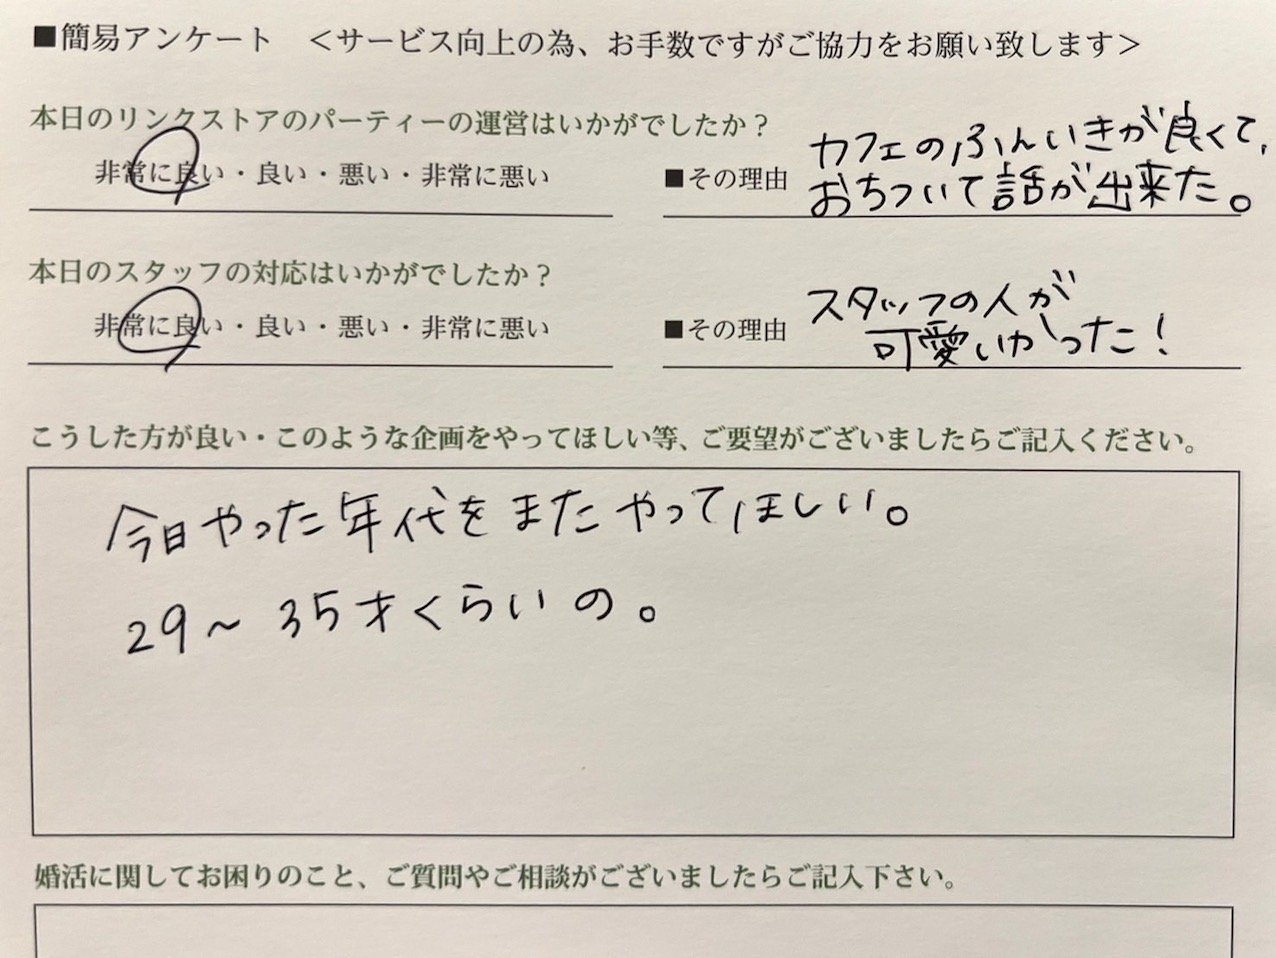 ■簡易アンケート　＜サービス向上の為、お手数ですがご協力をお願い致します＞
本日のリンクストアのパーティーの運営はいかがでしたか？
非常に良い・良い・悪い・非常に悪い
■その理由
カフェのふんいきが良くて、
おちついて話が出来た。
本日のスタッフの対応はいかがでしたか？
非常に良い・良い・悪い・非常に悪い
■その理由
スタッフの人が
可愛いかった！
こうした方が良い・このような企画をやってほしい等、ご要望がございましたらご記入ください。
今日やった年代をまたやってほしい。
29～35才くらいの。
婚活に関してお困りのこと、ご質問やご相談がございましたらご記入下さい。